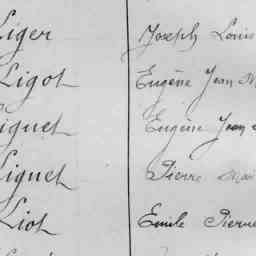 Liger Joseph Louis
Ligot Eugène Jean M
Liguet Eugène Jean
Liguet Pierre
Liot Emile Pierre